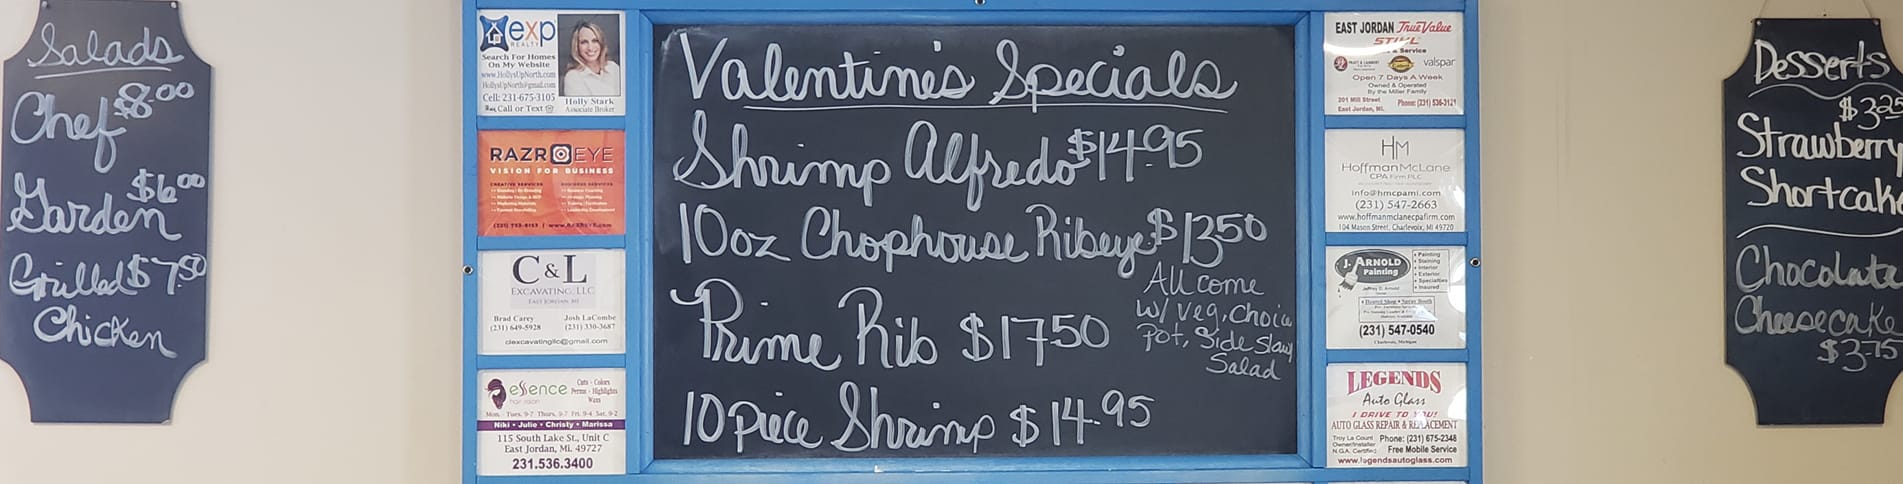 Salads
Chef $8.00
Garden $6.00
Grilled $7.50
Chicken
exp
REALTY
Search For Homes
On My Website
www.HollysUpNorth.com
HollysUpNorth@gmail.com
Cell: 231-675-3105
Call or Text
Holly Stark
Associate Broker
RAZR EYE
VISION FOR BUSINESS
CREATIVE SERVICES
BUSINESS SERVICES
C & L
EXCAVATING, LLC
EAST JORDAN, MI
Brad Carey
(231) 649-5928
Josh LaCombe
(231) 330-3687
clexcavatingllc@gmail.com
essence
hair salon
Cuts - Colors
Perms - Highlights
Waxs
Mon. - Tues. 9-7 Thurs. 9-7 Fri. 9-4 Sat. 9-2
Niki • Julie • Christy • Marissa
115 South Lake St., Unit C
East Jordan, Mi. 49727
231.536.3400
Valentine's Specials
Shrimp Alfredo $14.95
10oz Chophouse Ribeye $13.50
Prime Rib $17.50
10 piece Shrimp $14.95
All come
w/ veg, choice
pot, Side Slaw
Salad
EAST JORDAN True Value
STIHL
& Service
valspar
Open 7 Days A Week
Owned & Operated
By the Miller Family
201 Mill Street
East Jordan, MI.
Phone: (231) 536-3121
HM
HoffmanMcLane
CPA Firm PLC
info@hmcpami.com
(231) 547-2663
www.hoffmanmclanecpafirm.com
104 Mason Street, Charlevoix, MI 49720
J. ARNOLD
Painting
• Painting
• Staining
• Interior
• Exterior
• Specialties
• Insured
• Heated Shop • Spray Booth
(231) 547-0540
Charlevoix, Michigan
LEGENDS
Auto Glass
I DRIVE TO YOU!
AUTO GLASS REPAIR & REPLACEMENT
Troy La Count
Owner/Installer
N.G.A. Certified
Phone: (231) 675-2348
Free Mobile Service
www.legendsautoglass.com
Desserts
$3.25
Strawberry
Shortcake
Chocolate
Cheesecake
$3.75